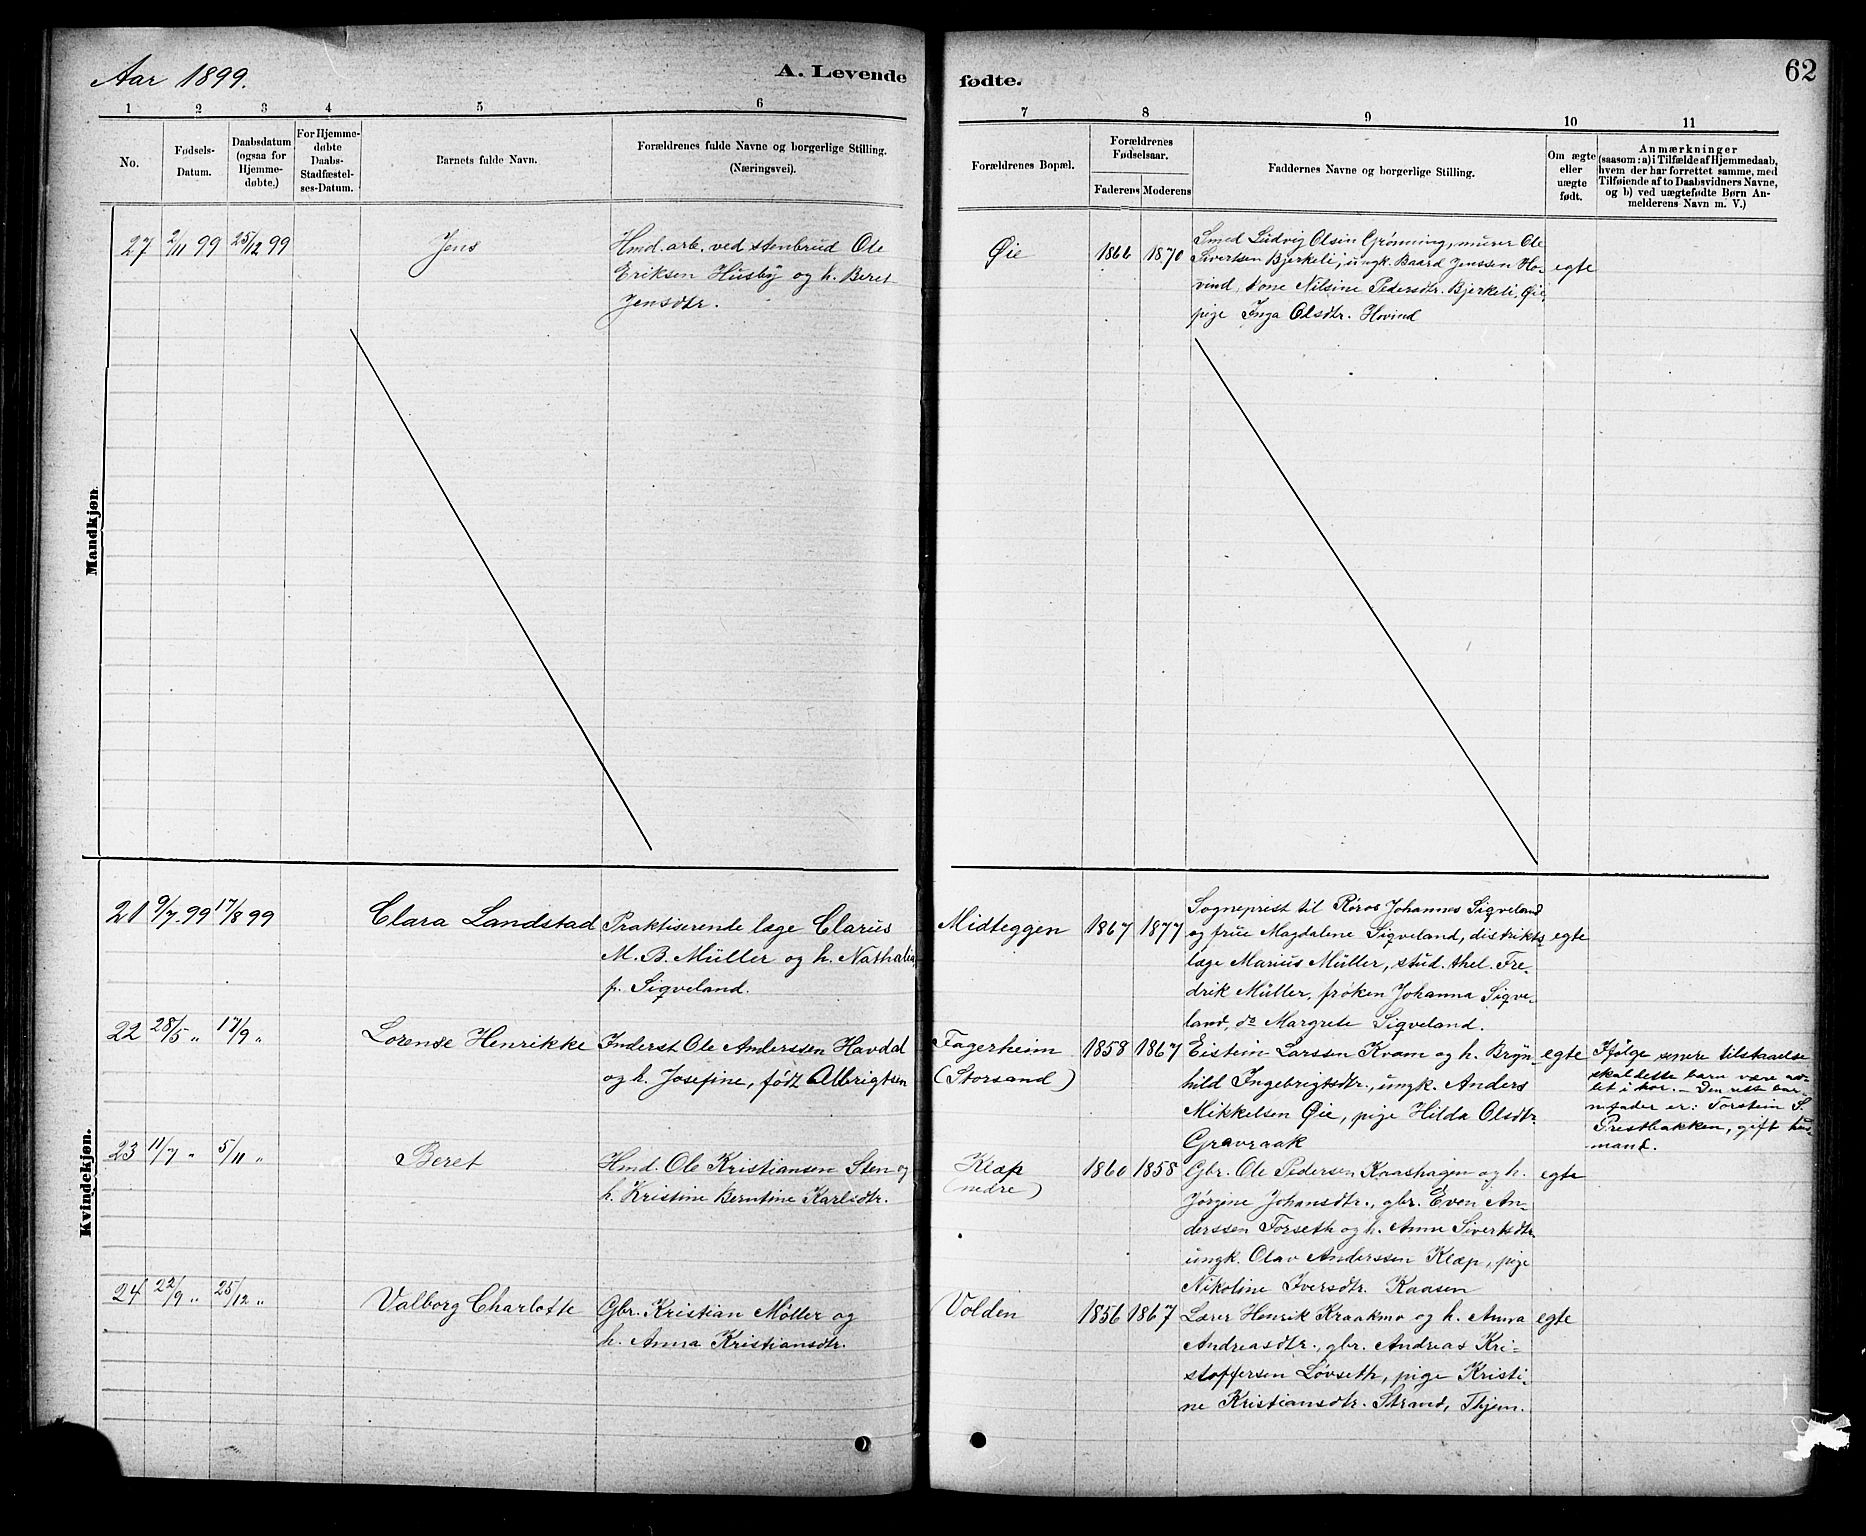 Aar 1899.
A. Levende fødte.
62
1 2 3 4 5 6 7 8 9 10 11
No.
Fødsels-
Datum.
Daabsdatum
(ogsaa for
Hjemme-
døbte.)
For Hjemme-
døbte
Daabs-
Stadfæstel-
ses-Datum.
Barnets fulde Navn.
Forældrenes fulde Navne og borgerlige Stilling.
(Næringsvei).
Forældrenes Bopæl.
Forældrenes
Fødselsaar.
Faderens Moderens
Faddernes Navne og borgerlige Stilling.
Om ægte
eller
uægte
født.
Anmærkninger
(saasom: a) i Tilfælde af Hjemmedaab,
hvem der har forrettet samme, med
Tilføiende af to Daabsvidners Navne,
og b) ved uægtefødte Børn An-
melderens Navn m. V.)
Mandkjøn.
27 2/11 99 25/12 99
Jens
Hmd. arb. ved stenbrud Ole
Eriksen Husby og h. Beret
Jensdtr.
Øie
1866 1870
Smed Ludvig Olsen Grønning, murer Ole
Sivertsen Bjerkeli, ungk. Baard Jenssen Ho-
vind, kone Nilsine Pedersdtr. Bjerkeli, Øie,
pige Inga Olsdtr. Hovind
egte
Kvindekjøn.
21 9/7 99 17/8 99
Clara Landstad
Praktiserende læge Clarius
M. B. Müller og h. Nathalia
f. Siqveland.
Midteggen
1867 1877
Sogneprest til Røros Johannes Siqveland
og frue Magdalene Siqveland, distrikts-
læge Marius Müller, stud. theol. Fre-
drik Müller, frøken Johanna Siqve-
land, do Margrete Siqveland.
egte
22 28/5 " 17/9 "
Lorense Henrikke
Inderst Ole Anderssen Havdal
og h. Josefine, født Albrigtsen
Fagerheim
(Storsand)
1858 1867
Eistein Larssen Kvam og h. Bryn-
hild Ingebrigtsdtr., ungk. Anders
Mikkelsen Øie, pige Hilda Olsdtr.
Gravraak
egte
Ifølge senere tilstaaelse
skal dette barn være av-
let i hor. – Den rette bar-
nefader er: Torstein S.
Prestbakken, gift hus-
mand.
23 11/7 " 5/11 "
Beret
Hmd. Ole Kristiansen Sten og
h. Kristine Berntine Karlsdtr.
Klæp
(nedre)
1860 1858
Gbr. Ole Pedersen Kaashagen og h.
Jørgine Johansdtr., gbr. Even An-
derssen Forseth og h. Anne Sivertsdtr.
ungk. Olav Anderssen Klæp, pige
Nikoline Iversdtr. Kaasen
egte
24 22/9 " 25/12 "
Valborg Charlotte
Gbr. Kristian Møller og
h. Anna Kristiansdtr.
Volden
1856 1867
Lærer Henrik Kraakmo og h. Anna
Andreasdtr., gbr. Andreas Kri-
stoffersen Løvseth, pige Kristi-
ne Kristiansdtr. Strand, Thjem.
egte